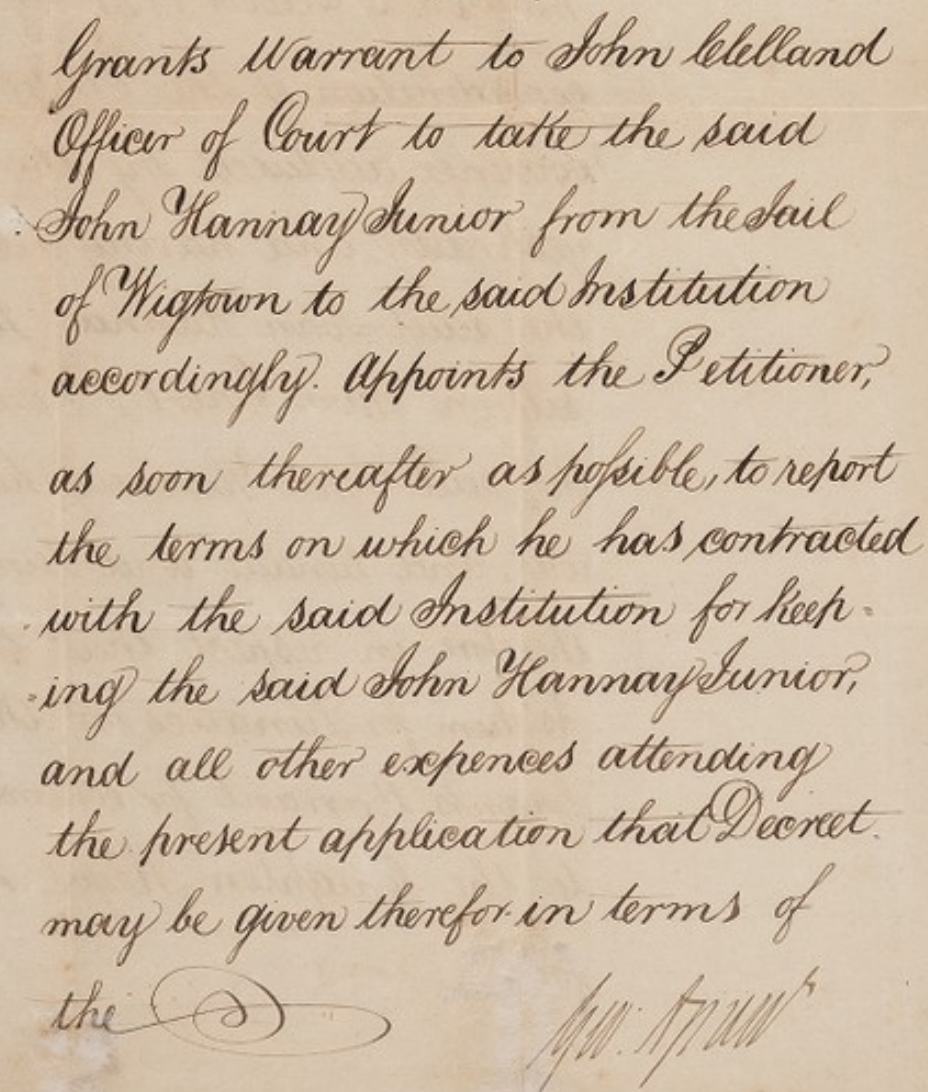 Grants Warrant to John Clelland
Officer of Court to take the said
John Hannay Junior from the Jail
of Wigtown to the said Institution
accordingly. Appoints the Petitioner,
as soon thereafter as poſsible, to report
the terms on which he has contracted
with the said Institution for keep-
-ing the said John Hannay Junior,
and all other expences attending
the present application that Decreet.
may be given therefor in terms of
the
Geo: